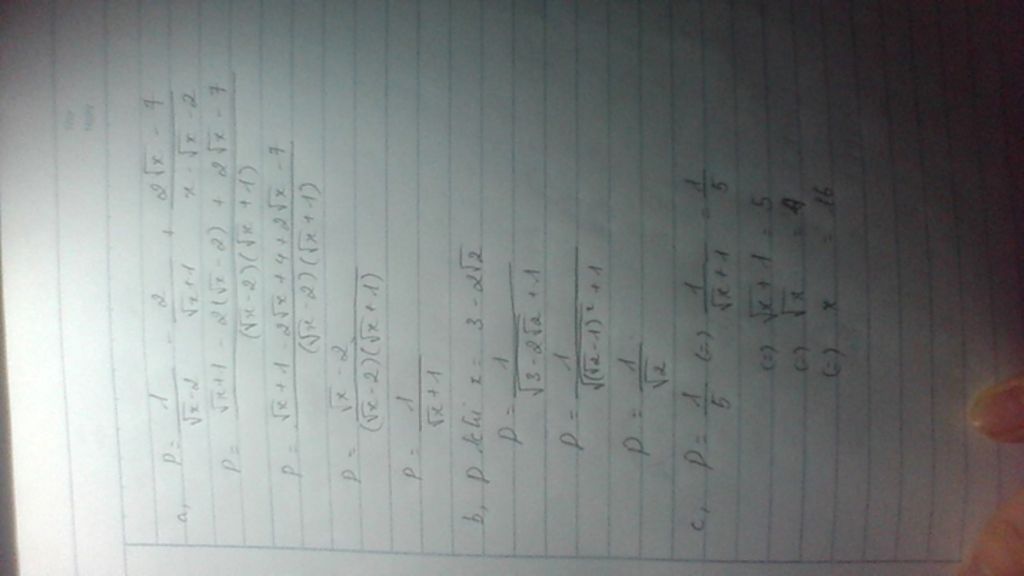 a, P = 1/(√x-2) - 2/(√x+1) + (2√x - 7)/(x - √x - 2)
P = (√x+1 - 2(√x-2) + 2√x - 7)/((√x-2)(√x+1))
P = (√x+1 - 2√x+4+2√x-7)/((√x-2)(√x+1))
P = (√x-2)/((√x-2)(√x+1))
P = 1/(√x+1)
b, P khi x = 3-2√2
P = 1/(√(3-2√2)+1)
P = 1/(√((√2-1)²)+1)
P = 1/√2
c, P = 1/5 (=) 1/(√x+1) = 1/5
(=) √x+1 = 5
(=) √x = 4
(=) x = 16